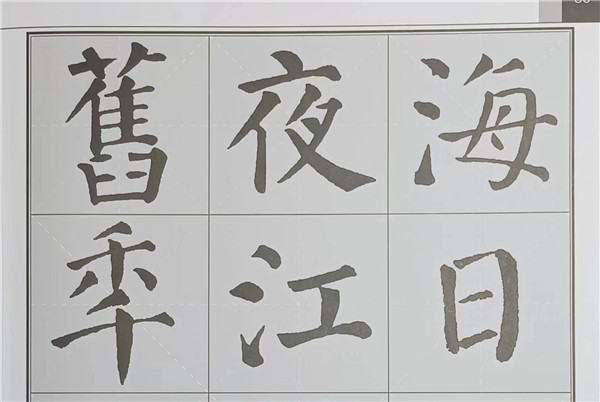 海日
夜江
舊年